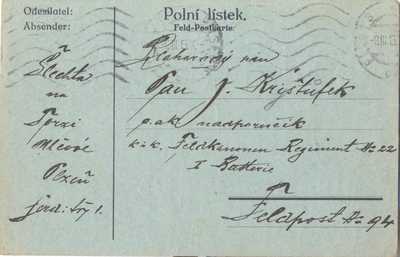 Odesílatel:
Absender:
Polní lístek.
Feld-Postkarte.
Šlechta
na
Plzeň
Blahorodý pan
Pan J. Kryštůfek
nadporučík
k.k. Feldkanonen Regiment No 22
I Batterie
Feldpost No 94